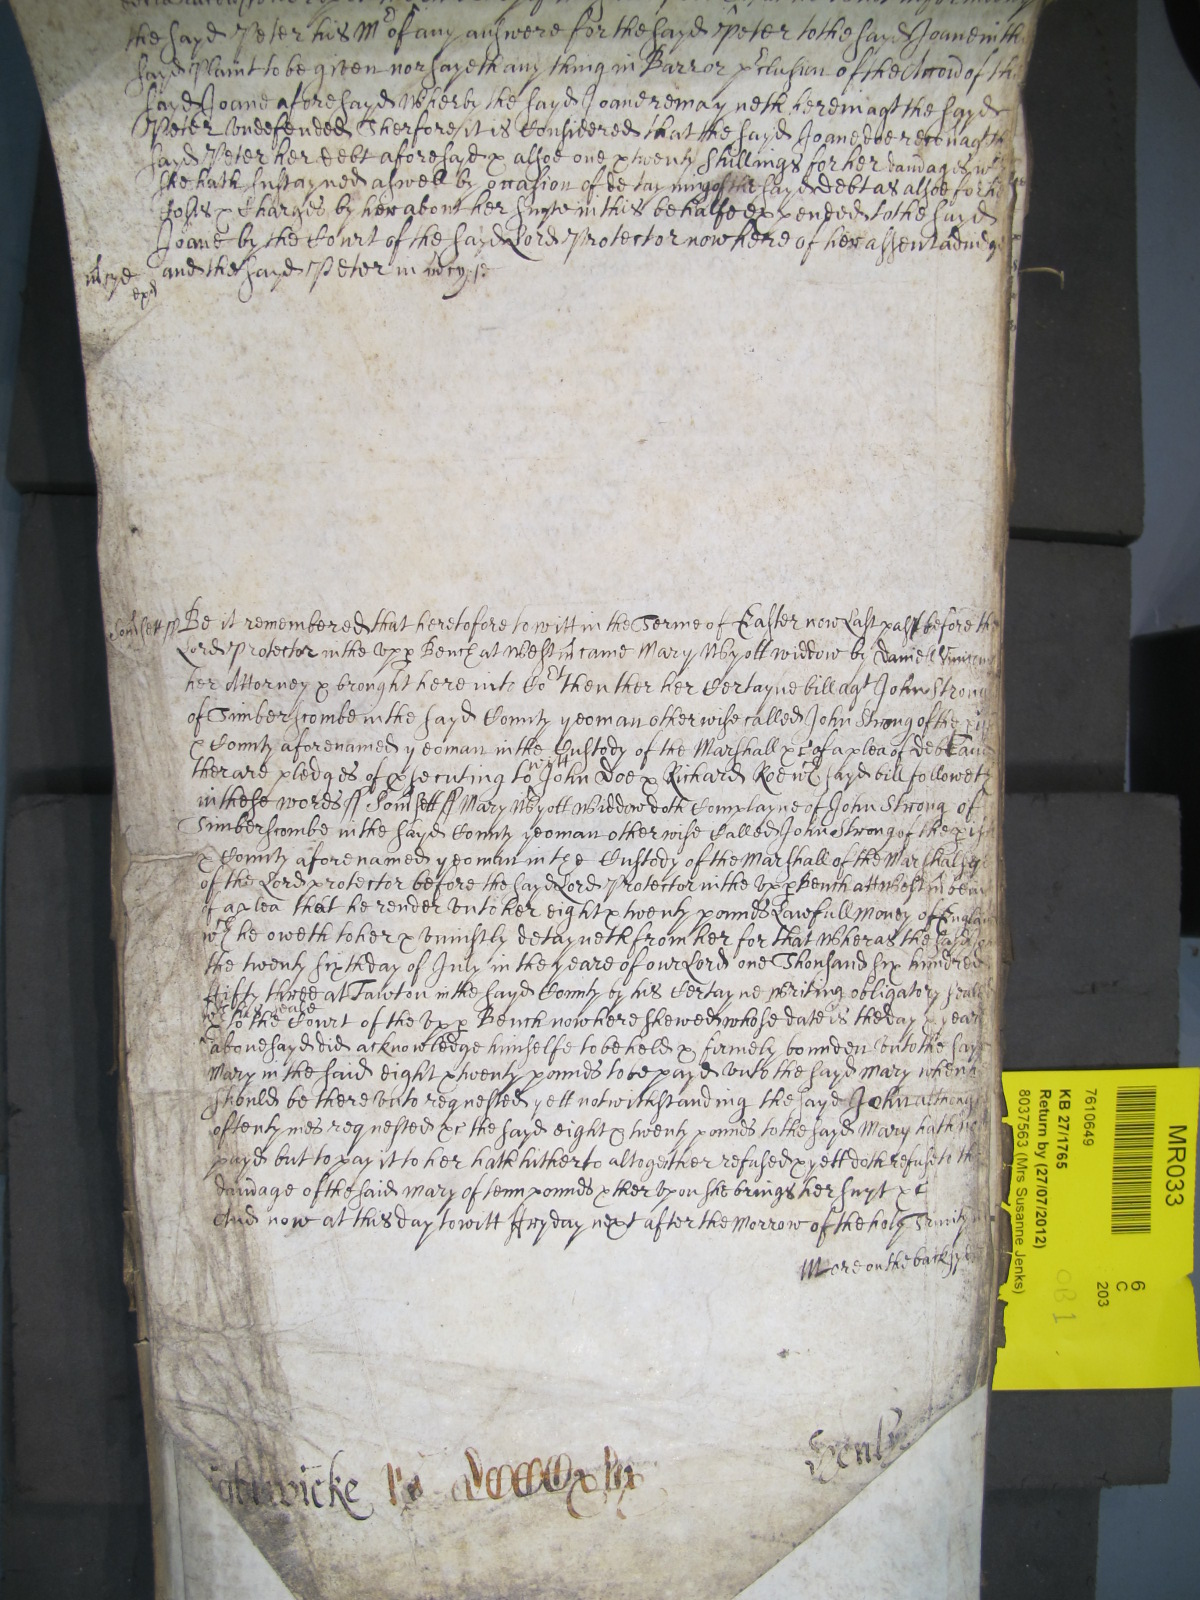 the sayd Peter his Mr of any answere for the sayd Peter to the sayd Joane in the
sayd Plaint to be given nor sayeth any thing in Barr or pclusion of the Accon of the
sayd Joane aforesayd Wherby the sayd Joane remayneth herein agt the sayd
Peter Undefended Therfore it is Considered that the sayd Joane doe recover agt the
sayd Peter her debt aforesayd & alsoe one & twenty shillings for her damages wch
she hath sustayned aswell by occasion of detayning of the sayd debt as alsoe for her
Costs & Charges by her about her suyte in this behalfe expended to the sayd
Joane by the Court of the sayd Lord Protector now here of her assent adiudged
and the sayd Peter in mcy &c
Somsett ss Be it remembered that heretofore to witt in the Terme of Easter now last past before the
Lord Protector in the Vpp Bench at Westm came Mary Wyott widdow by Daniell
her Attorney & brought here into Cort then ther her Certayne bill agt John Strong
of Timberscombe in the sayd County yeoman otherwise called John Strong of the
& County aforenamed yeoman in the Custody of the Marshall &c of a plea of debt And
ther are pledges of psecuting to witt John Doe & Richard Roe wch sayd bill followeth
in these words ss Somsett ss Mary Wyott Widdow doth Complayne of John Strong of
Timberscombe in the sayd County yeoman otherwise Called John Strong of the
& County aforenamed yeoman in the Custody of the Marshall of the Marshalsye
of the Lord protector before the sayd Lord Protector in the Vpp Bench att Westm being
of a plea that he render vnto her eight & twenty pounds Lawfull Money of England
wch he oweth to her & Vniustly detayneth from her for that Wheras the sayd
the twenty sixth day of July in the yeare of our Lord one Thousand six hundred
ffifty three at Tawton in the sayd County by his Certayne Writing obligatory seald
wth his seale
& to the Court of the Vpp Bench now here shewed whose date is the day & yeare
abovesayd did acknowledge himselfe to be held & firmely bounden Vnto the sayd
Mary in the said eight & twenty pounds to be payd vnto the sayd Mary when
should be there vnto requested yett notwithstanding the sayd John although
oftentymes requested &c the sayd eight & twenty pounds to the sayd Mary hath not
payd but to pay it to her hath hitherto altogether refused & yett doth refuse to the
damage of the said Mary of tenn pounds & ther vpon she brings her suyt &c
And now at this day to witt ffryday next after the Morrow of the holy Trinity
More on the back
Henly
MR033
7610649
KB 27/1765
Return by (27/07/2012)
8037563 (Mrs Susanne Jenks)
6
C
203
OB 1